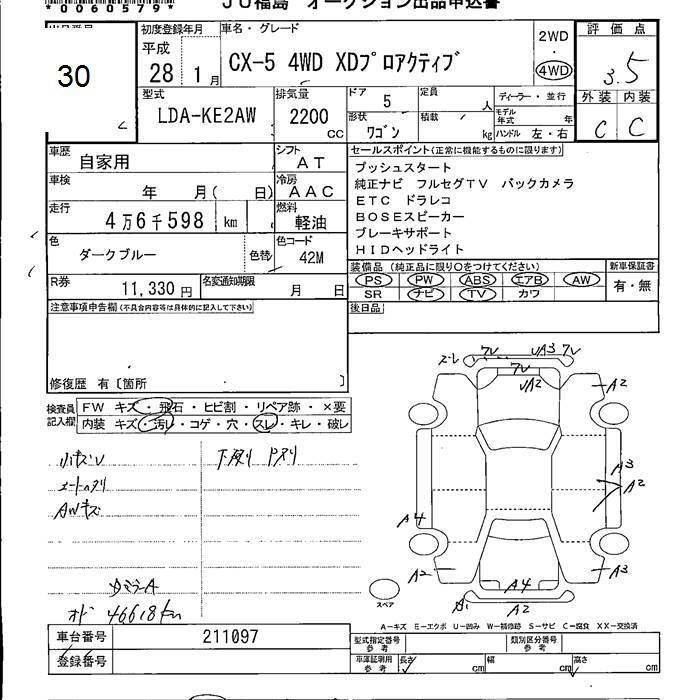 *0060579*
JU福島 オークション出品申込書
出品番号
30
初度登録年月
平成
28 1 月
車名・グレード
CX-5 4WD XDプロアクティブ
2WD
・
4WD
評価点
3.5
外装 内装
C C
型式
LDA-KE2AW
排気量
2200
CC
ドア
5
定員
人
形状
ワゴン
積載
kg
ディーラー・並行
モデル年式
年
ハンドル 左・右
車歴
自家用
シフト
AT
車検
年 月( 日)
冷房
AAC
走行
4万6千598 km
燃料
軽油
色
ダークブルー
色替
色コード
42M
R券
11,330 円
名変通知期限
月 日
セールスポイント(正常に機能するものに限ります)
プッシュスタート
純正ナビ フルセグTV バックカメラ
ETC ドラレコ
BOSEスピーカー
ブレーキサポート
HIDヘッドライト
装備品 (純正品に限り○をつけてください)
PS PW ABS エアB AW
SR ナビ TV カワ
新車保証書
有・無
後日品
注意事項申告欄(不具合内容等は具体的に記入して下さい)
修復歴 有〔箇所 〕
検査員
記入欄
FW キズ・飛石・ヒビ割・リペア跡・×要
内装 キズ・汚レ・コゲ・穴・スレ・キレ・破レ
小キズU
AWキズ
下廻り
オド 46618km
7U UA3 7U
7U
UA2
A2
A3
A2
A4
A2
A4
A3
A1
A2
スペア
A-キズ E-エクボ U-凹み W-補修跡 S-サビ C-腐食 XX-交換済
車台番号
211097
登録番号
型式指定番号
参考
類別区分番号
参考
車庫証明用
参考
長さ
cm
幅
cm
高さ
cm